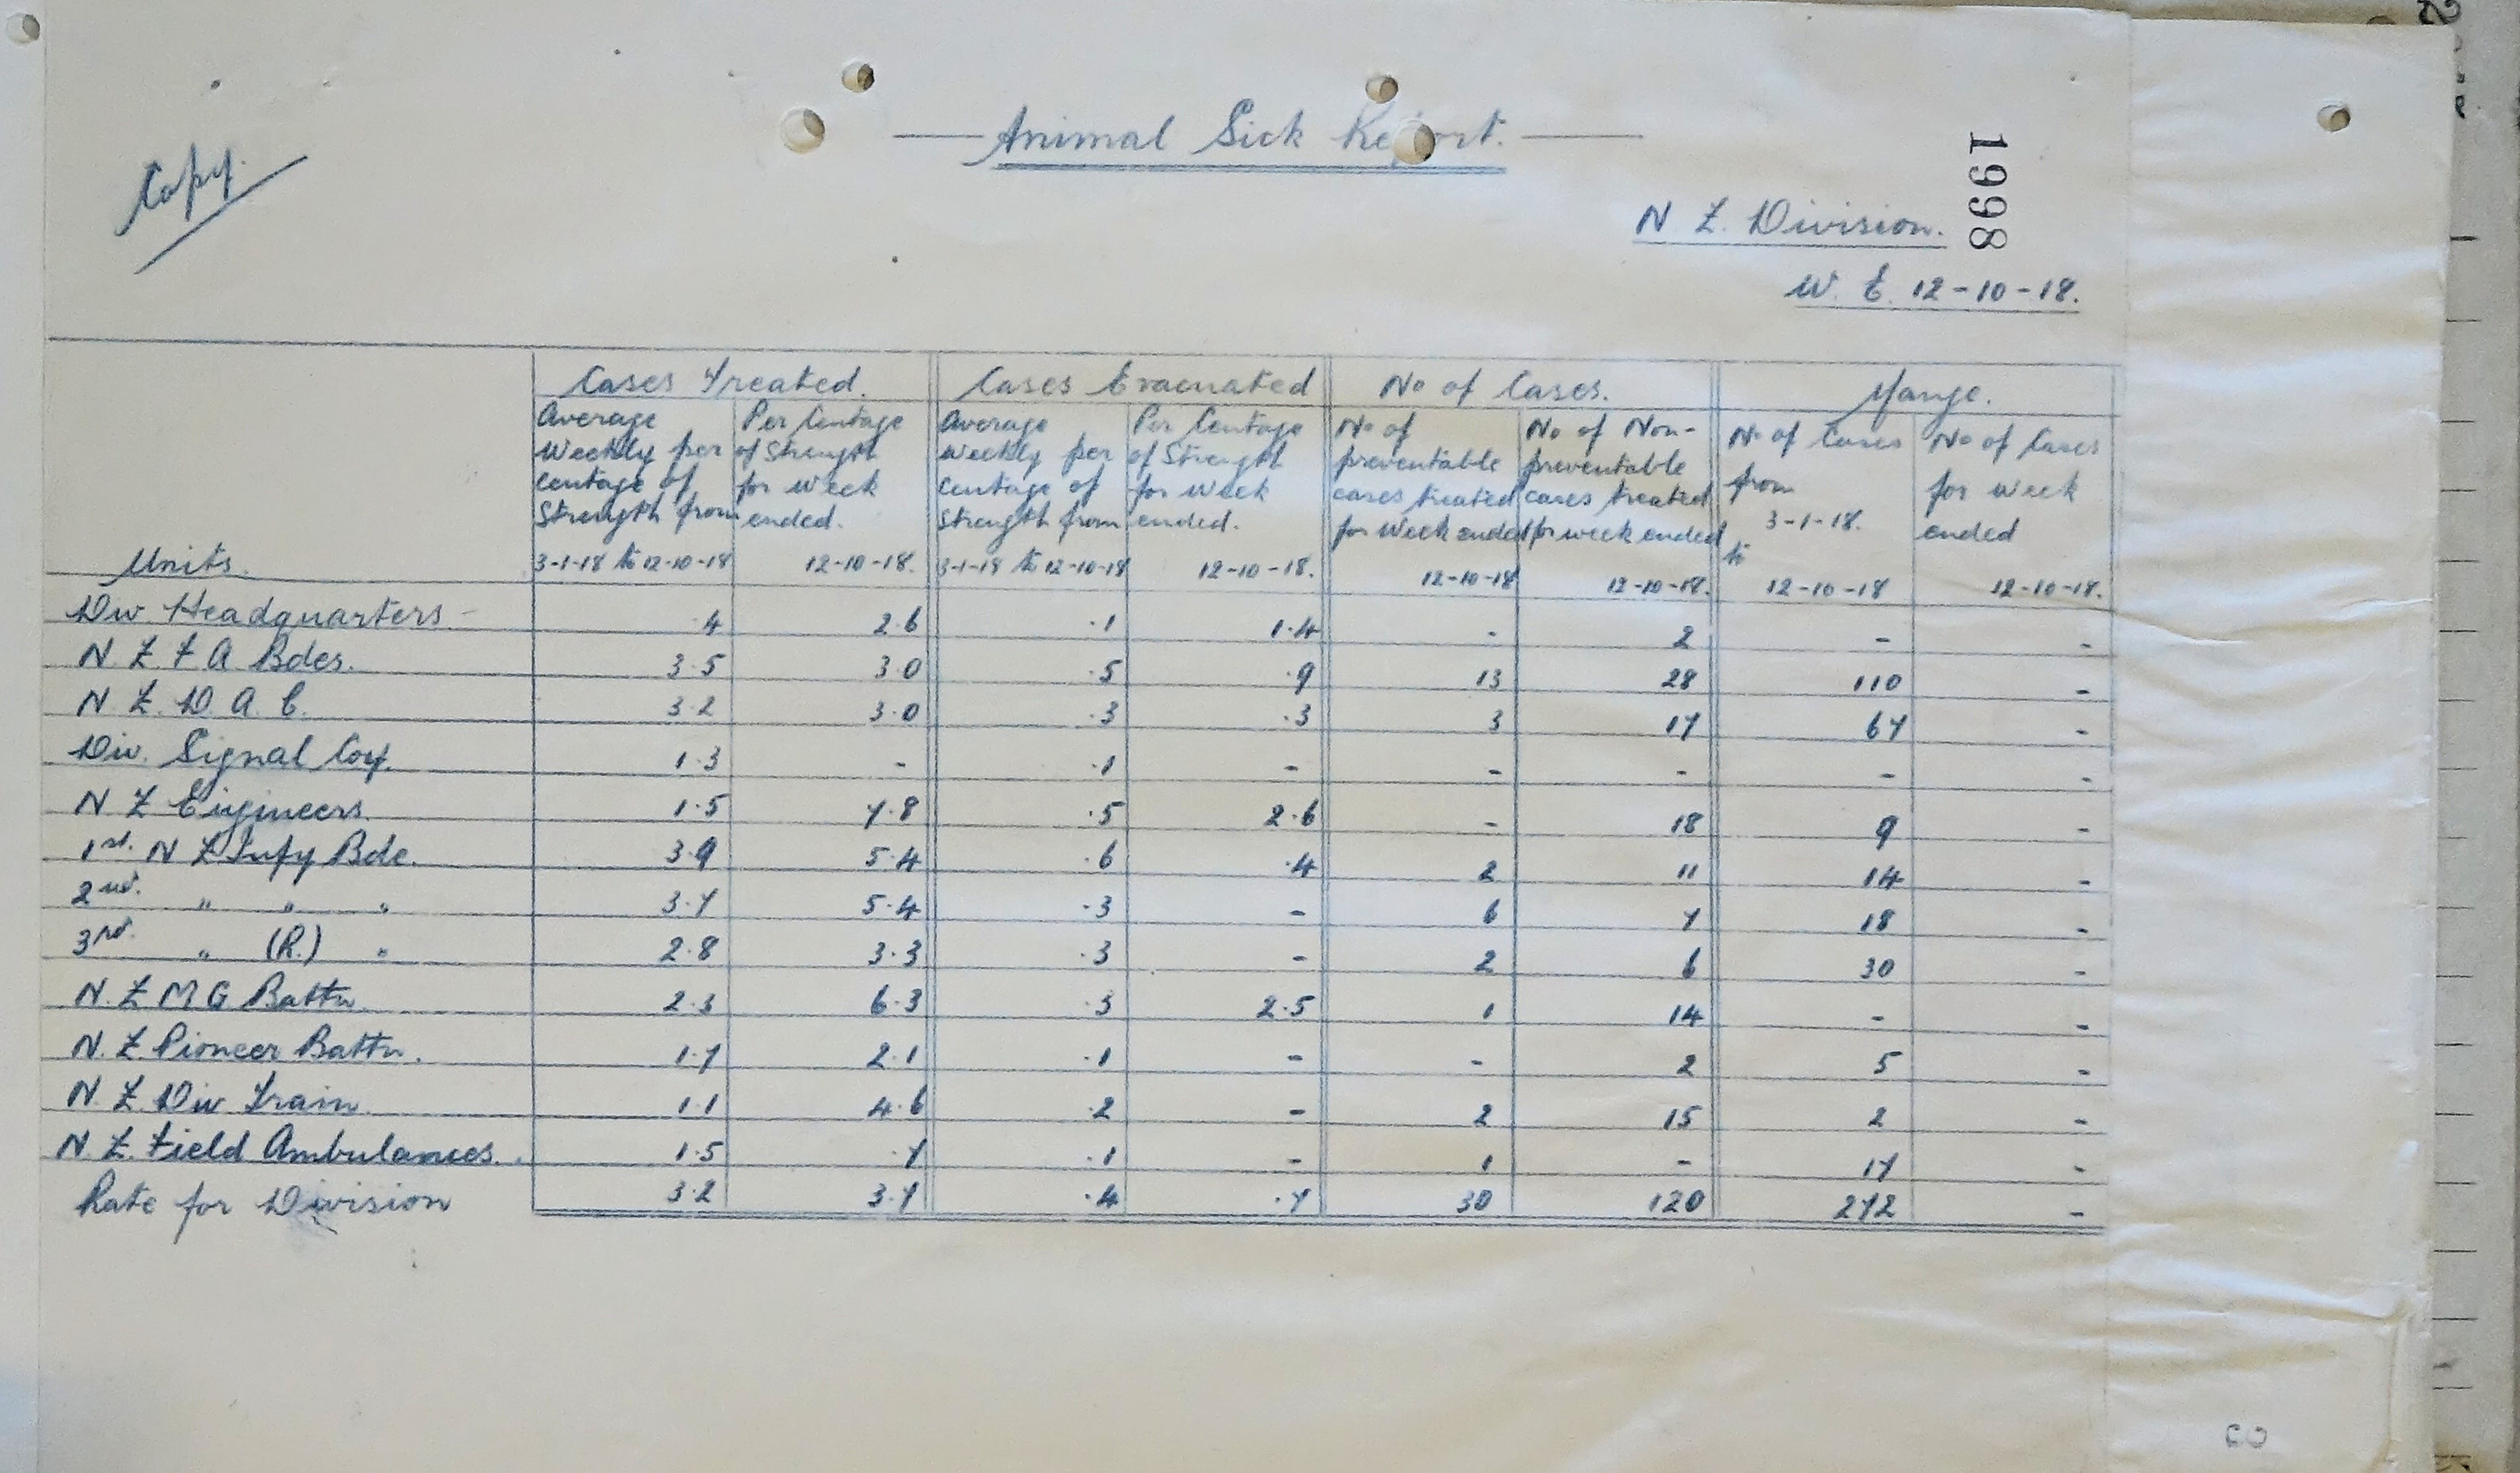 Copy.
— Animal Sick Report. —
1998
N Z. Division.
W. E. 12-10-18.
Cases Treated. Cases Evacuated No of Cases. Mange.
Units. Average Weekly per centage of Strength from 3-1-18 to 12-10-18 Per Centage of Strength for week ended. 12-10-18. Average Weekly per centage of Strength from 3-1-18 to 12-10-18 Per Centage of Strength for week ended. 12-10-18. No of preventable cases treated for Week ended 12-10-18 No of Non-preventable cases treated for week ended 12-10-18. No of Cases from 3-1-18. to 12-10-18 No of Cases for week ended 12-10-18.
Div. Headquarters - .4 2.6 .1 1.4 - 2 - -
N. Z. F A Bdes. 3.5 3.0 .5 .9 13 28 110 -
N. Z. D. A. C. 3.2 3.0 .3 .3 3 17 67 -
Div. Signal Coy. 1.3 - .1 - - - - -
N Z Engineers. 1.5 7.8 .5 2.6 - 18 9 -
1st. N Z Infy Bde. 3.9 5.4 .6 .4 2 11 14 -
2nd. " " " 3.7 5.4 .3 - 6 7 18 -
3rd. " (R.) " 2.8 3.3 .3 - 2 6 30 -
N. Z M G Battn. 2.3 6.3 .3 2.5 1 14 - -
N. Z Pioneer Battn. 1.7 2.1 .1 - - 2 5 -
N. Z. Div Train. 1.1 4.6 .2 - 2 15 2 -
N. Z. Field Ambulances. 1.5 .7 .1 - 1 - 17 -
Rate for Division 3.2 3.7 .4 .7 30 120 272 -